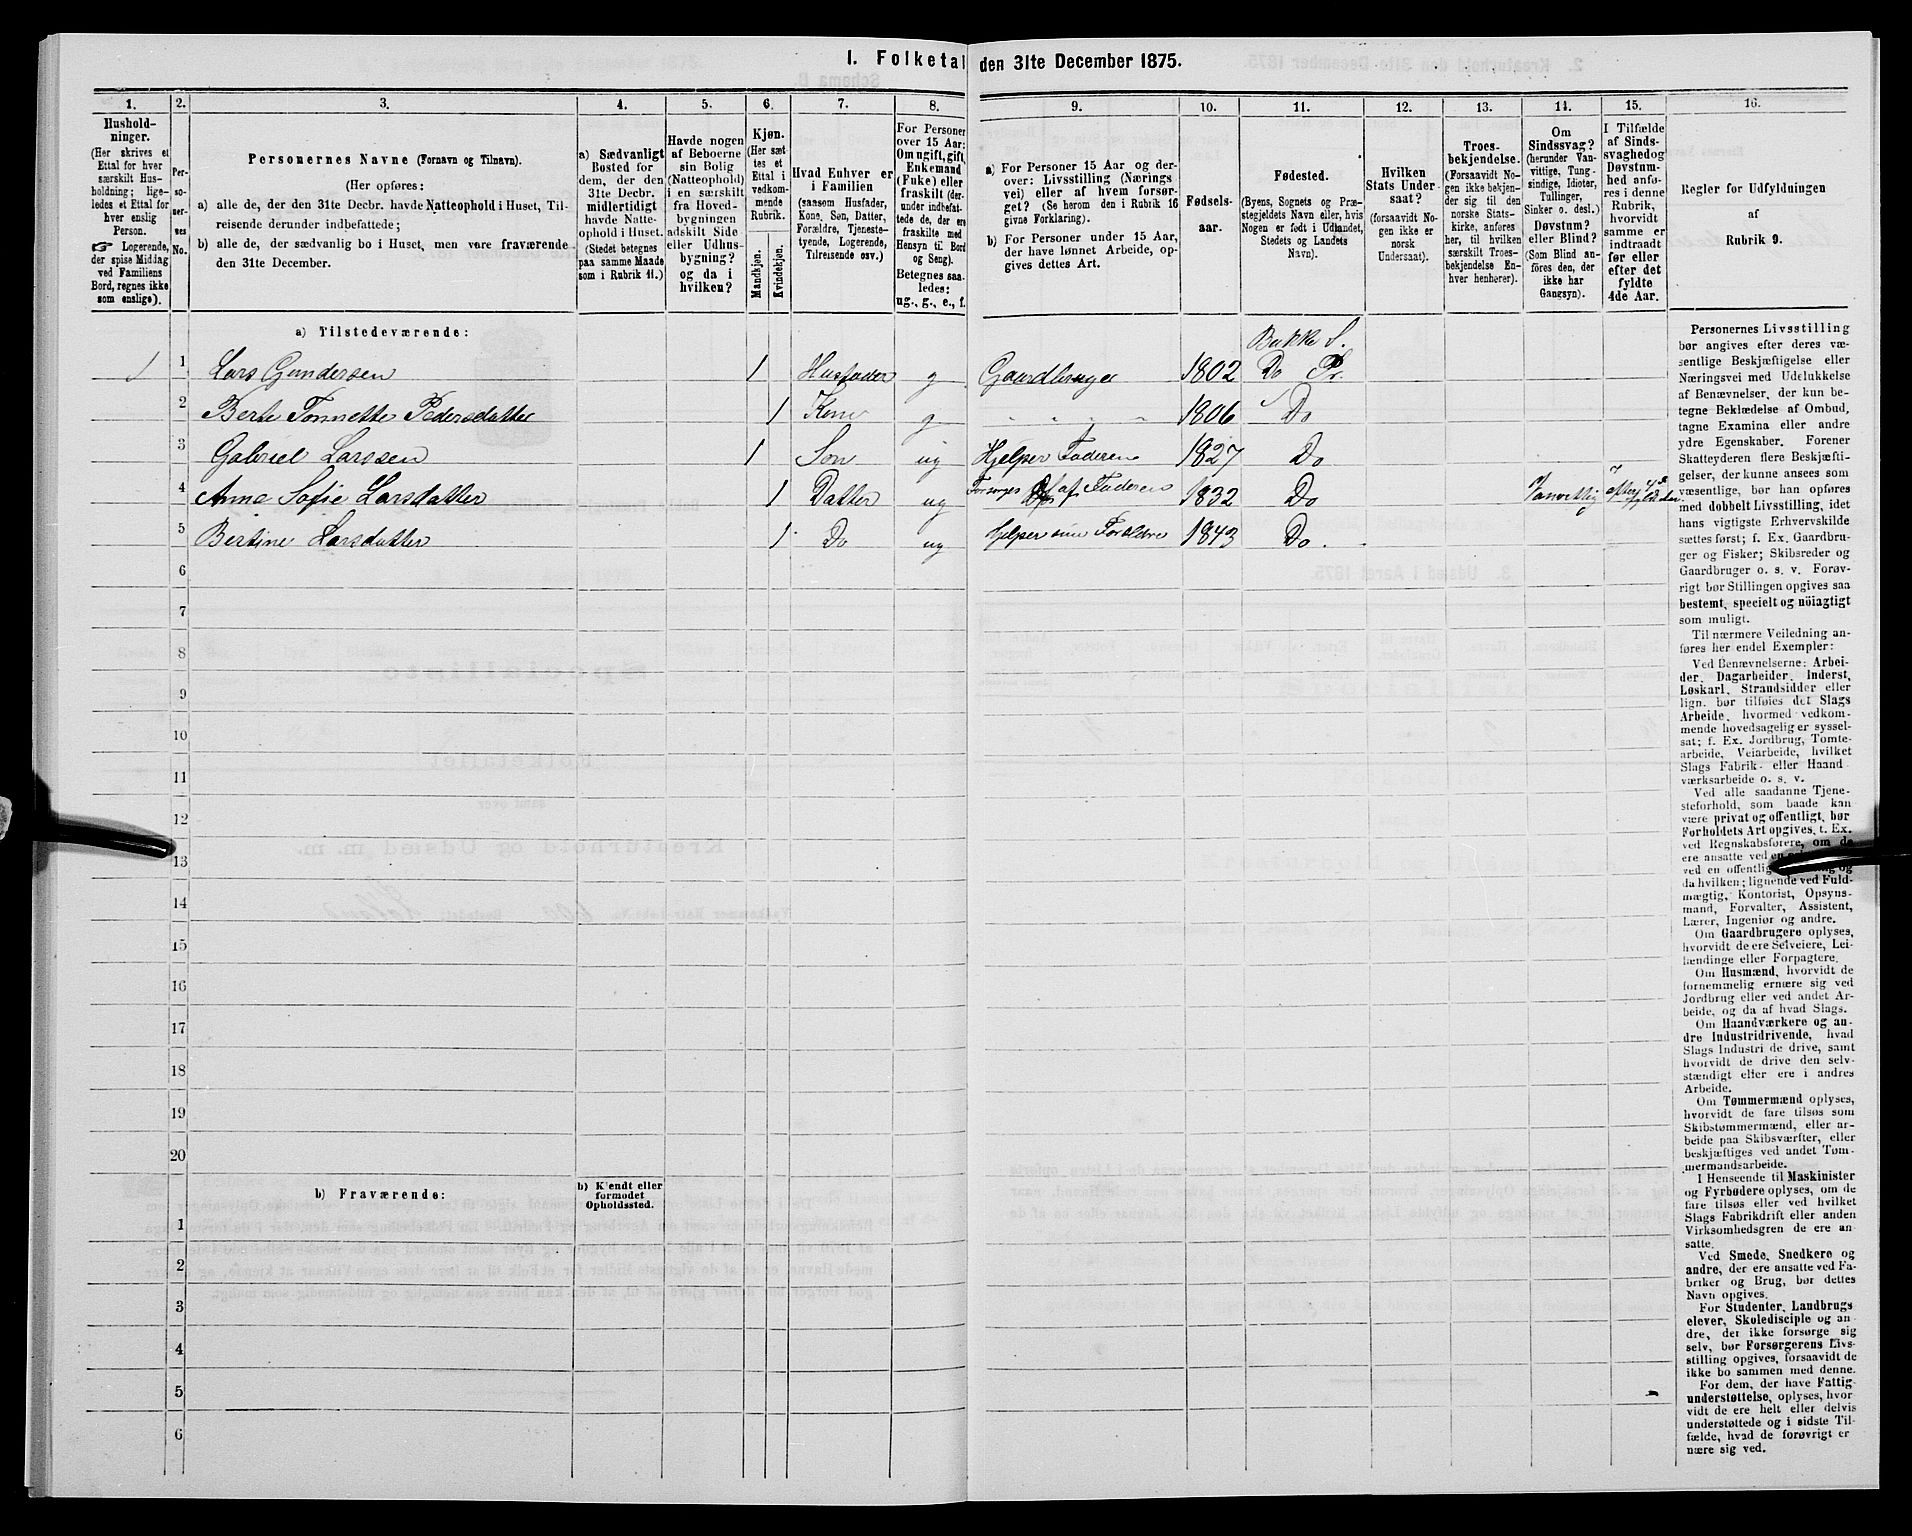 1. Folketal den 31te December 1875.
1. 2. 3. 4. 5. 6. 7. 8. 9. 10. 11. 12. 13. 14. 15. 16.
Hushold-
ninger.
(Her skrives et
Ettal for hver
særskilt Hus-
holdning; lige-
ledes et Ettal for
hver enslig
Person.
☞ Logerende,
der spise Middag
ved Familiens
Bord, regnes ikke
som enslige).
Per-
so-
ner-
nes
No.
Personernes Navne (Fornavn og Tilnavn).
(Her opføres:
a) alle de, der den 31te Decbr. havde Natteophold i Huset, Til-
reisende derunder indbefattede;
b) alle de, der sædvanlig bo i Huset, men vare fraværende
den 31te December.
a) Sædvanligt
Bosted for
dem, der den
31te Decbr.
midlertidigt
havde Natte-
ophold i Huset.
(Stedet betegnes
paa samme Maade
som i Rubrik 11.)
Havde nogen
af Beboerne
sin Bolig
(Natteophold)
i en særskilt
fra Hoved-
bygningen
adskilt Side
eller Udhus-
bygning?
og da i
hvilken?
Kjøn.
(Her sæt-
tes et
Ettal i
vedkom-
mende
Rubrik.
Mandkjøn.
Kvindekjøn.
Hvad Enhver er
i Familien
(saasom Husfader,
Kone, Søn, Datter,
Forældre, Tjeneste-
tyende, Logerende,
Tilreisende osv.)
For Personer
over 15 Aar:
Om ugift, gift,
Enkemand
(Enke) eller
fraskilt (der-
under indbefat-
tede de, der ere
fraskilte med
Hensyn til Bord
og Seng).
Betegnes saa-
ledes:
ug., g., e., f.
a) For Personer 15 Aar og der-
over: Livsstilling (Nærings
vei) eller af hvem forsør-
get? (Se herom den i Rubrik 16
givne Forklaring).
b) For Personer under 15 Aar,
der have lønnet Arbeide, op-
gives dettes Art.
Fødsels-
aar.
Fødested.
(Byens, Sognets og Præ-
stegjeldets Navn eller, hvis
Nogen er født i Udlandet,
Stedets og Landets
Navn).
Hvilken
Stats Under-
saat?
(forsaavidt No-
gen ikke er
norsk
Undersaat).
Troes-
bekjendelse.
(Forsaavidt No-
gen ikke bekjen-
der sig til den
norske Stats-
kirke, anføres
her, til hvilken
særskilt Troes-
bekjendelse En-
hver henhører).
Om
Sindssvag?
(herunder Van-
vittige, Tung-
sindige, Idioter,
Tullinger,
Sinker o. desl.)
Døvstum?
eller Blind?
(Som Blind an-
føres den, der
ikke har
Gangsyn).
I Tilfælde
af Sinds-
svaghed og
Døvstum-
hed anfø-
res i denne
Rubrik,
hvorvidt
samme er
indtraadt
før eller
efter det
fyldte
4de Aar.
Regler for Udfyldningen
af
Rubrik 9.
a) Tilstedeværende:
Bakke S.
1 1 Lars Gundersen 1 Husfader g Gaardbruger 1802 Do Pr.
2 Berte Tonnette Pedersdatter 1 Kone g " " " " 1806 Do
3 Gabriel Larssen 1 Søn ug Hjelper Faderen 1827 Do
4 Anne Sofie Larsdatter 1 Datter ug Forsørges af Faderen 1832 Do Vanvittig
5 Bertine Larsdatter 1 Do ug Hjelper sine Foreldre 1843 Do.
6
7
8
9
10
11
12
13
14
15
16
17
18
19
20
b) Fraværende:
b) Kjendt eller
formodet
Opholdssted.
1
2
3
4
5
6
Personernes Livsstilling
bør angives efter deres væ-
sentlige Beskjæftigelse eller
Næringsvei med Udelukkelse
af Benævnelser, der kun be-
tegne Beklædelse af Ombud,
tagne Examina eller andre
ydre Egenskaber. Forener
Skatteyderen flere Beskjæfti-
gelser, der kunne ansees som
væsentlige, bør han opføres
med dobbelt Livsstilling, idet
hans vigtigste Erhvervskilde
sættes først; f. Ex. Gaardbru-
ger og Fisker; Skibsreder og
Gaardbruger o. s. v. Forøv-
rigt bør Stillingen opgives saa
bestemt, specielt og nøiagtigt
som muligt.
Til nærmere Veiledning an-
føres her endel Exempler:
Ved Benævnelserne: Arbei-
der, Dagarbeider, Inderst,
Løskarl, Strandsidder eller
lign. bør tilføies det Slags
Arbeide, hvormed vedkom-
mende hovedsagelig er syssel-
sat; f. Ex. Jordbrug, Tomte-
arbeide, Veiarbeide, hvilket
Slags Fabrik- eller Haand
værksarbeide o. s. v.
Ved alle saadanne Tjene-
steforhold, som baade kan
være privat og offentligt, bør
Forholdets Art opgives, t. Ex.
ved Regnskabsførere, om de
ere ansatte ved en
ved en offentlig og
da hvilken; lignende ved Fuld-
mægtig, Kontorist, Opsyns-
mand, Forvalter, Assistent,
Lærer, Ingeniør og andre.
Om Gaardbrugere oplyses,
hvorvidt de ere Selveiere, Lei-
lændinge eller Forpagtere.
Om Husmænd, hvorvidt de
fornemmelig ernære sig ved
Jordbrug eller ved andet Ar-
beide, og da af hvad Slags.
Om Haandværkere og an-
dre Industridrivende, hvad
Slags Industri de drive, samt
hvorvidt de drive den selv-
stændigt eller ere i andres
Arbeide.
Om Tømmermænd oplyses,
hvorvidt de fare tilsøs som
Skibstømmermænd, eller ar-
beide paa Skibsværfter, eller
beskjæftiges ved andet Tøm-
mermandsarbeide.
I Henseende til Maskinister
og Fyrbødere oplyses, om de
fare tilsøs eller ved hvilket
Slags Fabrikdrift eller anden
Virksomhedsgren de ere an-
satte.
Ved Smede, Snedkere og
andre, der ere ansatte ved Fa-
briker og Brug, bør dettes
Navn opgives.
For Studenter, Landbrugs
elever, Skoledisciple og an
dre, der ikke forsørge sig
selv, bør Forsørgerens Livs-
stilling opgives, forsaavidt de
ikke bo sammen med denne.
For dem, der have Fattig-
understøttelse, oplyses, hvor
vidt de ere helt eller delvis
understøttede og i sidste Til-
fælde, hvad de forøvrigt er
nære sig ved.